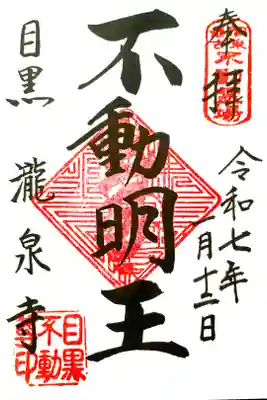 奉拝
令和七年
一月十二日
不動明王
目黒
瀧泉寺
目黒
不動
之印